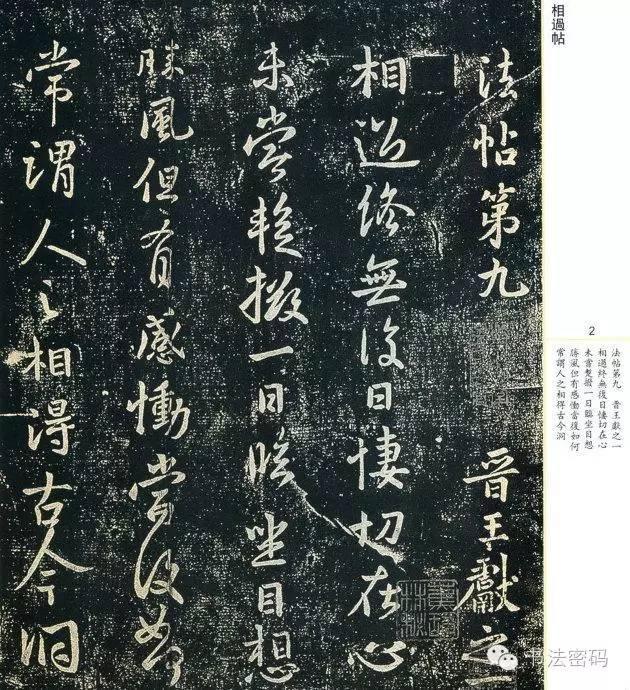 相過帖
2
法帖第九 晉王獻之一
相過終無復日悽切在心
未嘗暫掇一日臨坐目想
勝風但有感慟當復如何
常謂人之相得古今洞
法帖第九 晉王獻之一
相過終無復日悽切在心
未嘗暫掇一日臨坐目想
勝風但有感慟當復如何
常謂人之相得古今洞
书法密码